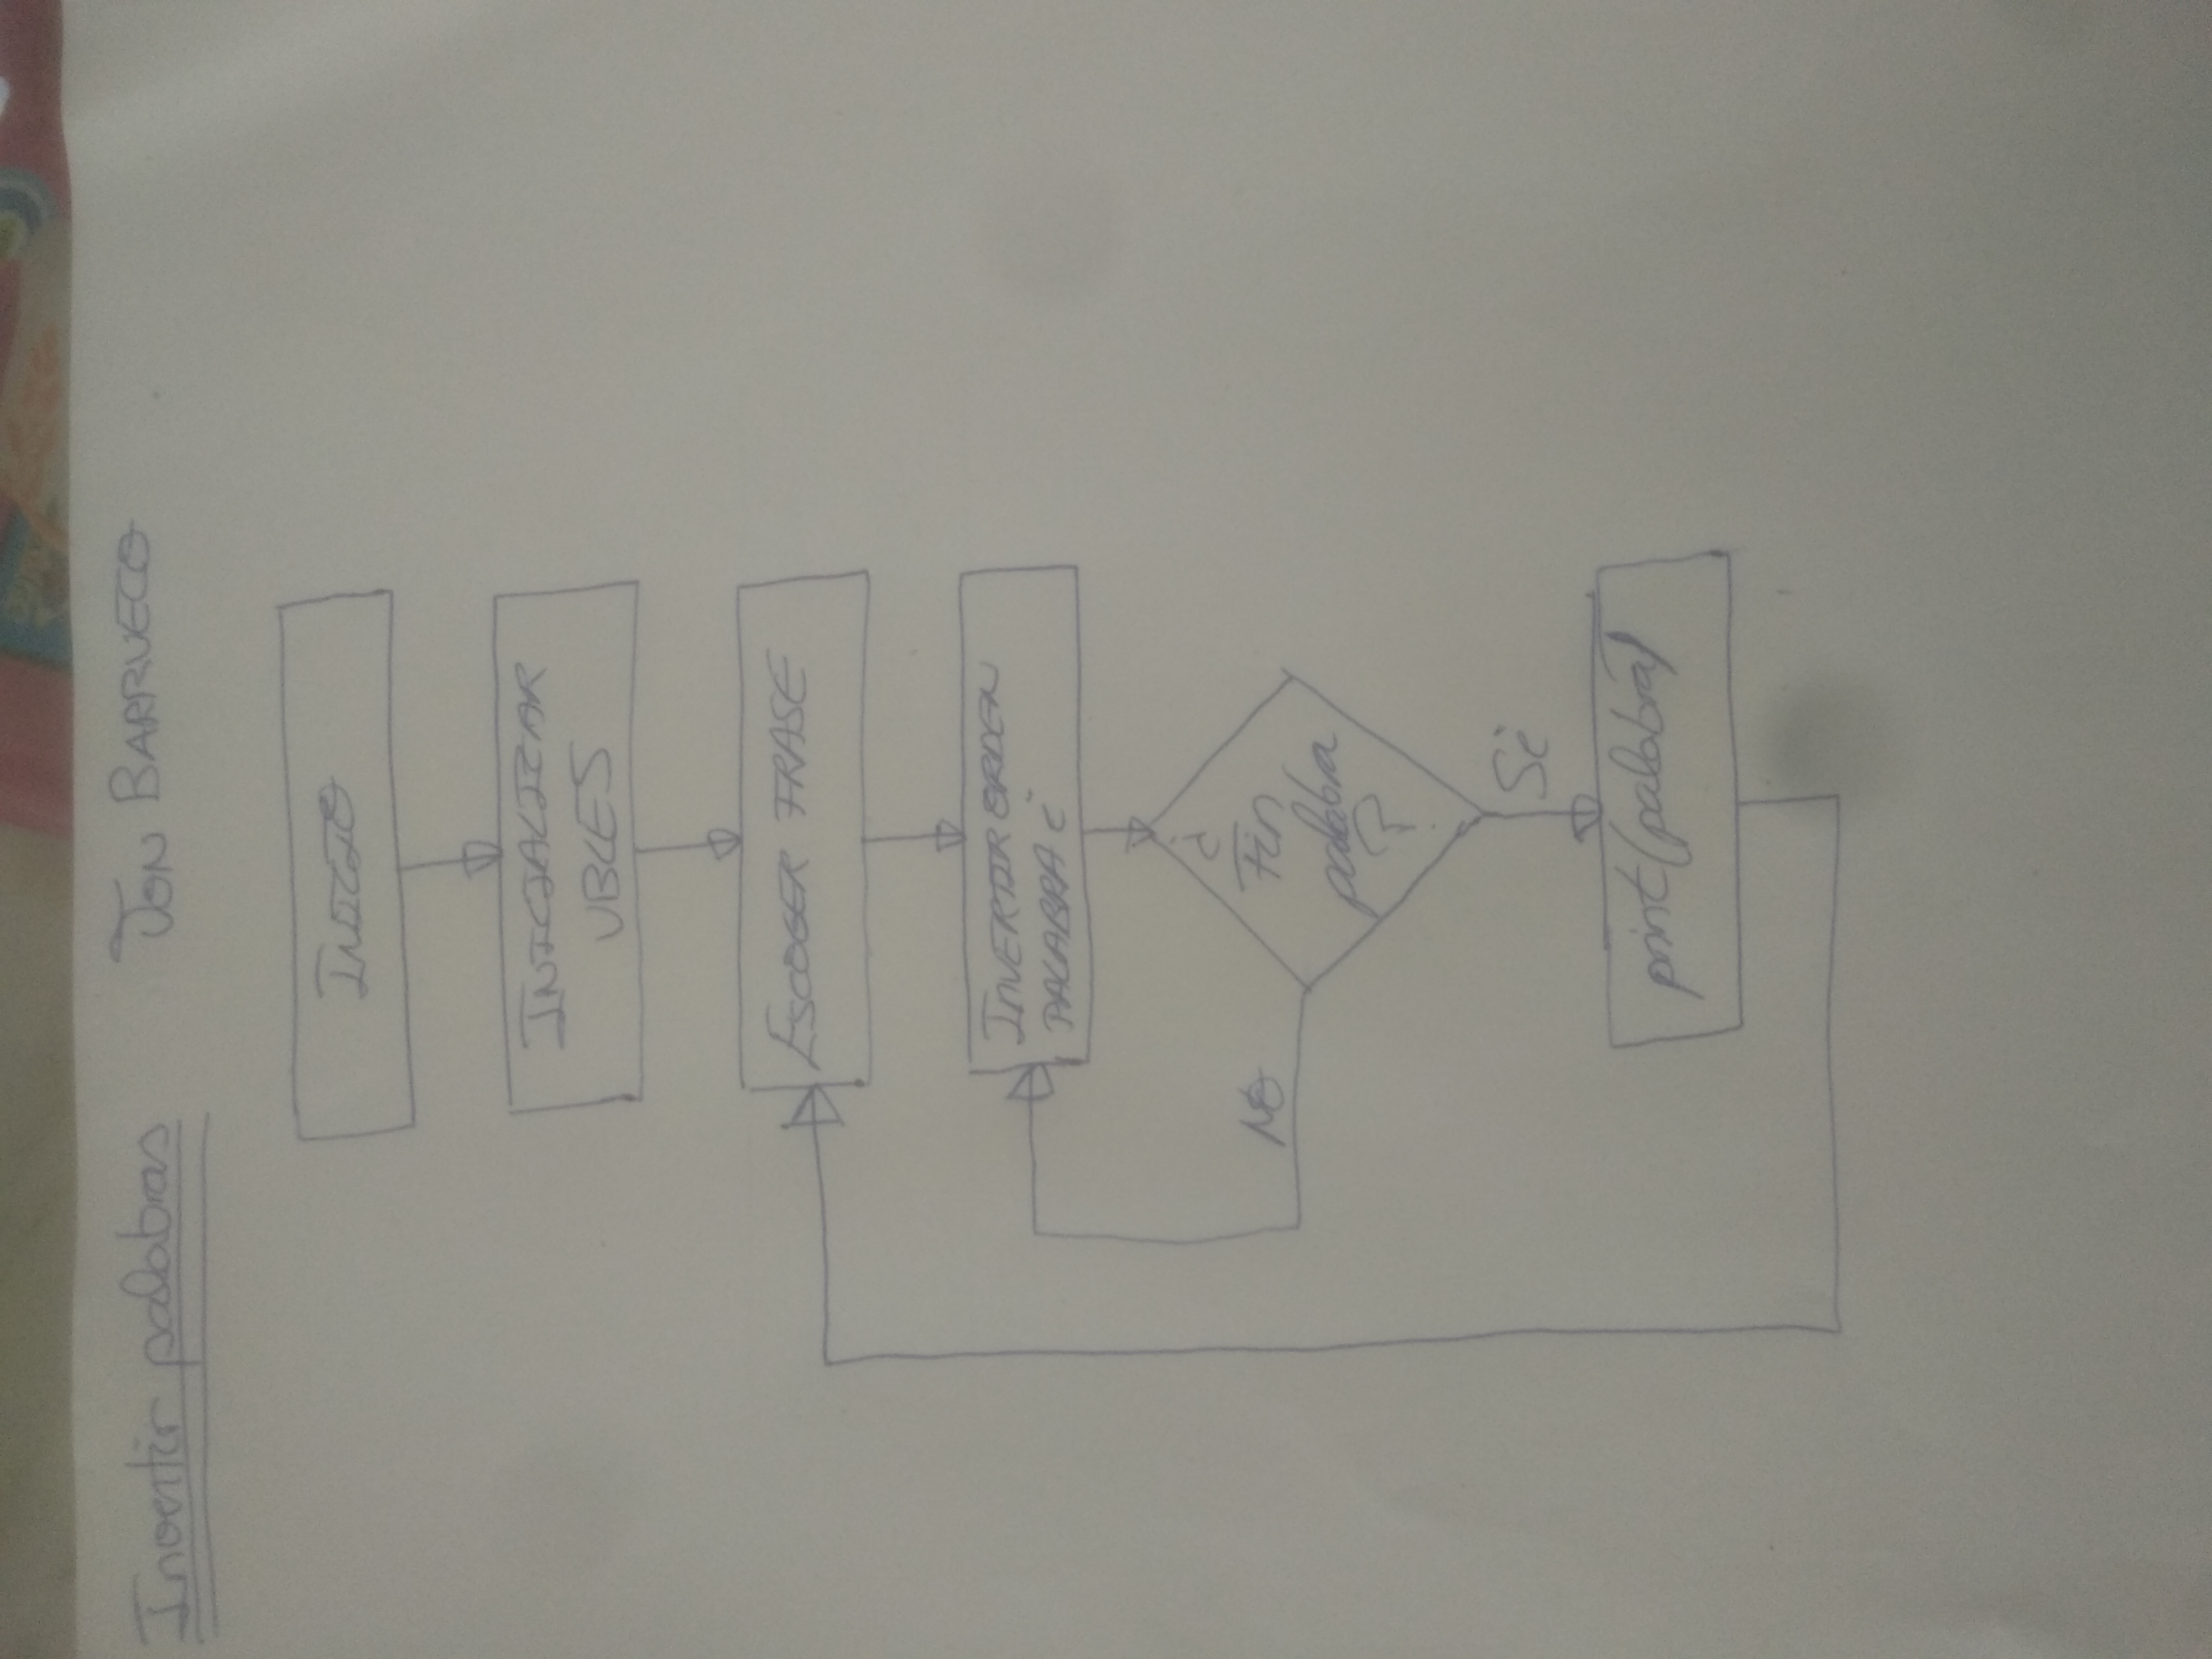 Invertir palabras
JON BARRUECO
INICIO
INICIALIZAR
VBLES
ESCOGER FRASE
INVERTIR ORDEN
PALABRA i
¿
Fin
palabra
?
NO
Si
print(palabra)